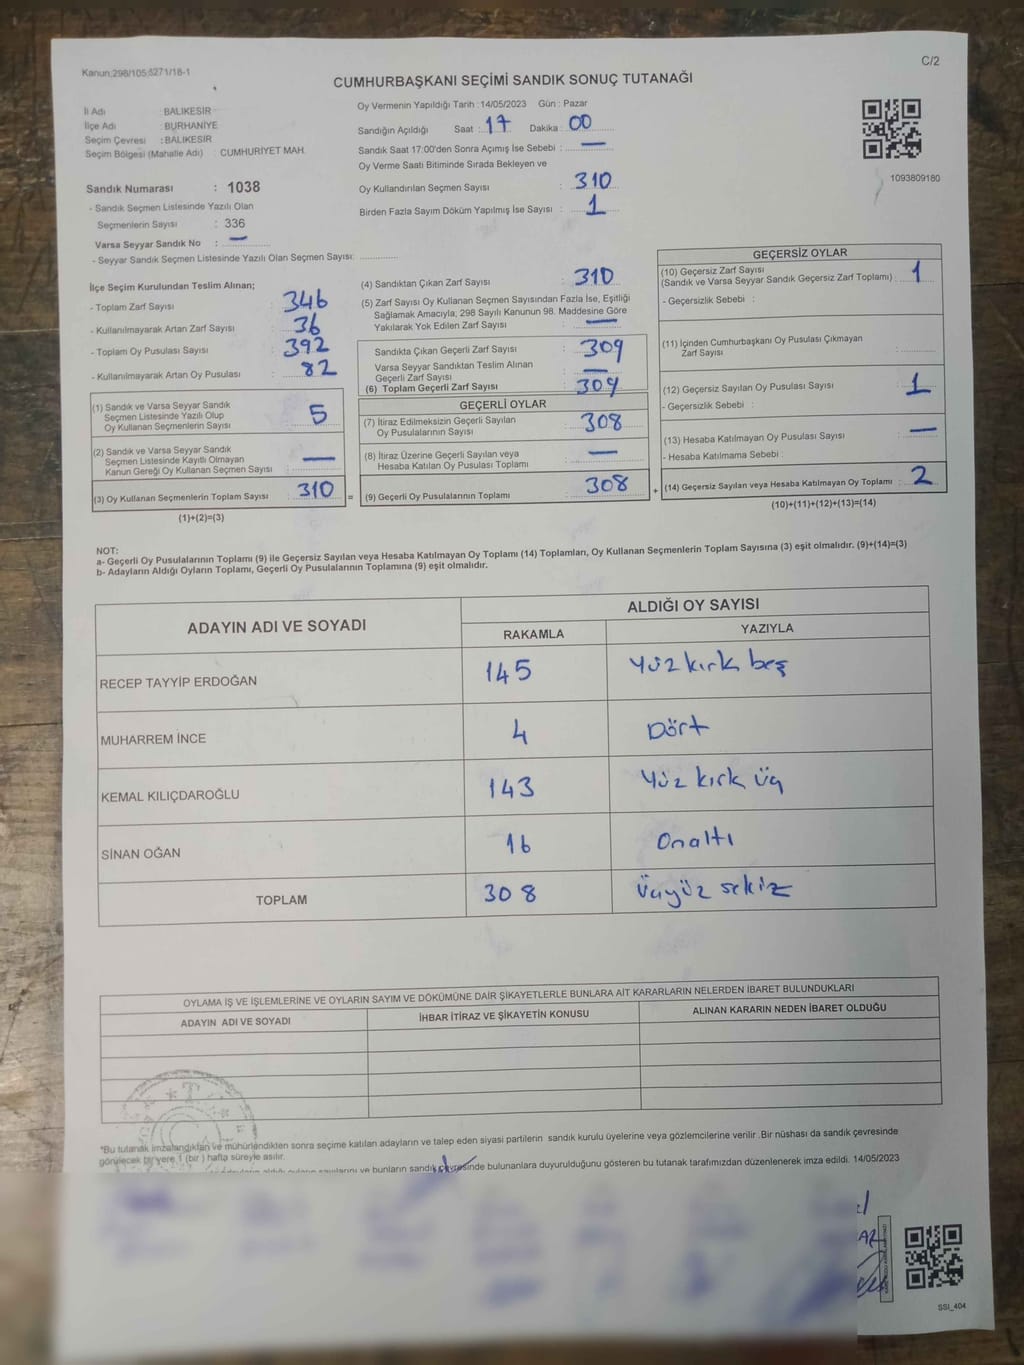 Kanun;298/105;6271/18-1
C/2
CUMHURBAŞKANI SEÇİMİ SANDIK SONUÇ TUTANAĞI
İl Adı : BALIKESİR
İlçe Adı : BURHANİYE
Seçim Çevresi : BALIKESİR
Seçim Bölgesi (Mahalle Adı) : CUMHURİYET MAH.
Sandık Numarası : 1038
- Sandık Seçmen Listesinde Yazılı Olan
Seçmenlerin Sayısı : 336
Varsa Seyyar Sandık No : —
- Seyyar Sandık Seçmen Listesinde Yazılı Olan Seçmen Sayısı:
Oy Vermenin Yapıldığı Tarih :14/05/2023 Gün : Pazar
Sandığın Açıldığı Saat : 17 Dakika : 00
Sandık Saat 17:00'den Sonra Açımış İse Sebebi : —
Oy Verme Saati Bitiminde Sırada Bekleyen ve
Oy Kullandırılan Seçmen Sayısı : 310
Birden Fazla Sayım Döküm Yapılmış İse Sayısı : 1
1093809180
İlçe Seçim Kurulundan Teslim Alınan;
- Toplam Zarf Sayısı : 346
- Kullanılmayarak Artan Zarf Sayısı : 36
- Toplam Oy Pusulası Sayısı : 392
- Kullanılmayarak Artan Oy Pusulası : 82
(1) Sandık ve Varsa Seyyar Sandık
Seçmen Listesinde Yazılı Olup
Oy Kullanan Seçmenlerin Sayısı : 5
(2) Sandık ve Varsa Seyyar Sandık
Seçmen Listesinde Kayıtlı Olmayan
Kanun Gereği Oy Kullanan Seçmen Sayısı : —
(3) Oy Kullanan Seçmenlerin Toplam Sayısı : 310 =
(1)+(2)=(3)
(4) Sandıktan Çıkan Zarf Sayısı : 310
(5) Zarf Sayısı Oy Kullanan Seçmen Sayısından Fazla İse, Eşitliği
Sağlamak Amacıyla, 298 Sayılı Kanunun 98. Maddesine Göre
Yakılarak Yok Edilen Zarf Sayısı : —
Sandıkta Çıkan Geçerli Zarf Sayısı : 309
Varsa Seyyar Sandıktan Teslim Alınan
Geçerli Zarf Sayısı : —
(6) Toplam Geçerli Zarf Sayısı : 309
GEÇERLİ OYLAR
(7) İtiraz Edilmeksizin Geçerli Sayılan
Oy Pusulalarının Sayısı : 308
(8) İtiraz Üzerine Geçerli Sayılan veya
Hesaba Katılan Oy Pusulası Toplamı : —
(9) Geçerli Oy Pusulalarının Toplamı : 308 +
GEÇERSİZ OYLAR
(10) Geçersiz Zarf Sayısı
(Sandık ve Varsa Seyyar Sandık Geçersiz Zarf Toplamı) : 1
- Geçersizlik Sebebi :
(11) İçinden Cumhurbaşkanı Oy Pusulası Çıkmayan
Zarf Sayısı :
(12) Geçersiz Sayılan Oy Pusulası Sayısı : 1
- Geçersizlik Sebebi :
(13) Hesaba Katılmayan Oy Pusulası Sayısı : —
- Hesaba Katılmama Sebebi :
(14) Geçersiz Sayılan veya Hesaba Katılmayan Oy Toplamı : 2
(10)+(11)+(12)+(13)=(14)
NOT:
a- Geçerli Oy Pusulalarının Toplamı (9) ile Geçersiz Sayılan veya Hesaba Katılmayan Oy Toplamı (14) Toplamları, Oy Kullanan Seçmenlerin Toplam Sayısına (3) eşit olmalıdır. (9)+(14)=(3)
b- Adayların Aldığı Oyların Toplamı, Geçerli Oy Pusulalarının Toplamına (9) eşit olmalıdır.
ADAYIN ADI VE SOYADI
ALDIĞI OY SAYISI
RAKAMLA YAZIYLA
RECEP TAYYİP ERDOĞAN 145 Yüz kırk beş
MUHARREM İNCE 4 Dört
KEMAL KILIÇDAROĞLU 143 Yüz kırk üç
SİNAN OĞAN 16 Onaltı
TOPLAM 308 Üçyüz sekiz
OYLAMA İŞ VE İŞLEMLERİNE VE OYLARIN SAYIM VE DÖKÜMÜNE DAİR ŞİKAYETLERLE BUNLARA AİT KARARLARIN NELERDEN İBARET BULUNDUKLARI
ADAYIN ADI VE SOYADI İHBAR İTİRAZ VE ŞİKAYETİN KONUSU ALINAN KARARIN NEDEN İBARET OLDUĞU
*Bu tutanak imzalandıktan ve mühürlendikten sonra seçime katılan adayların ve talep eden siyasi partilerin sandık kurulu üyelerine veya gözlemcilerine verilir .Bir nüshası da sandık çevresinde
görülecek bir yere 1 (bir ) hafta süreyle asılır.
ve bunların sandık çevresinde bulunanlara duyurulduğunu gösteren bu tutanak tarafımızdan düzenlenerek imza edildi. 14/05/2023
SSI_404